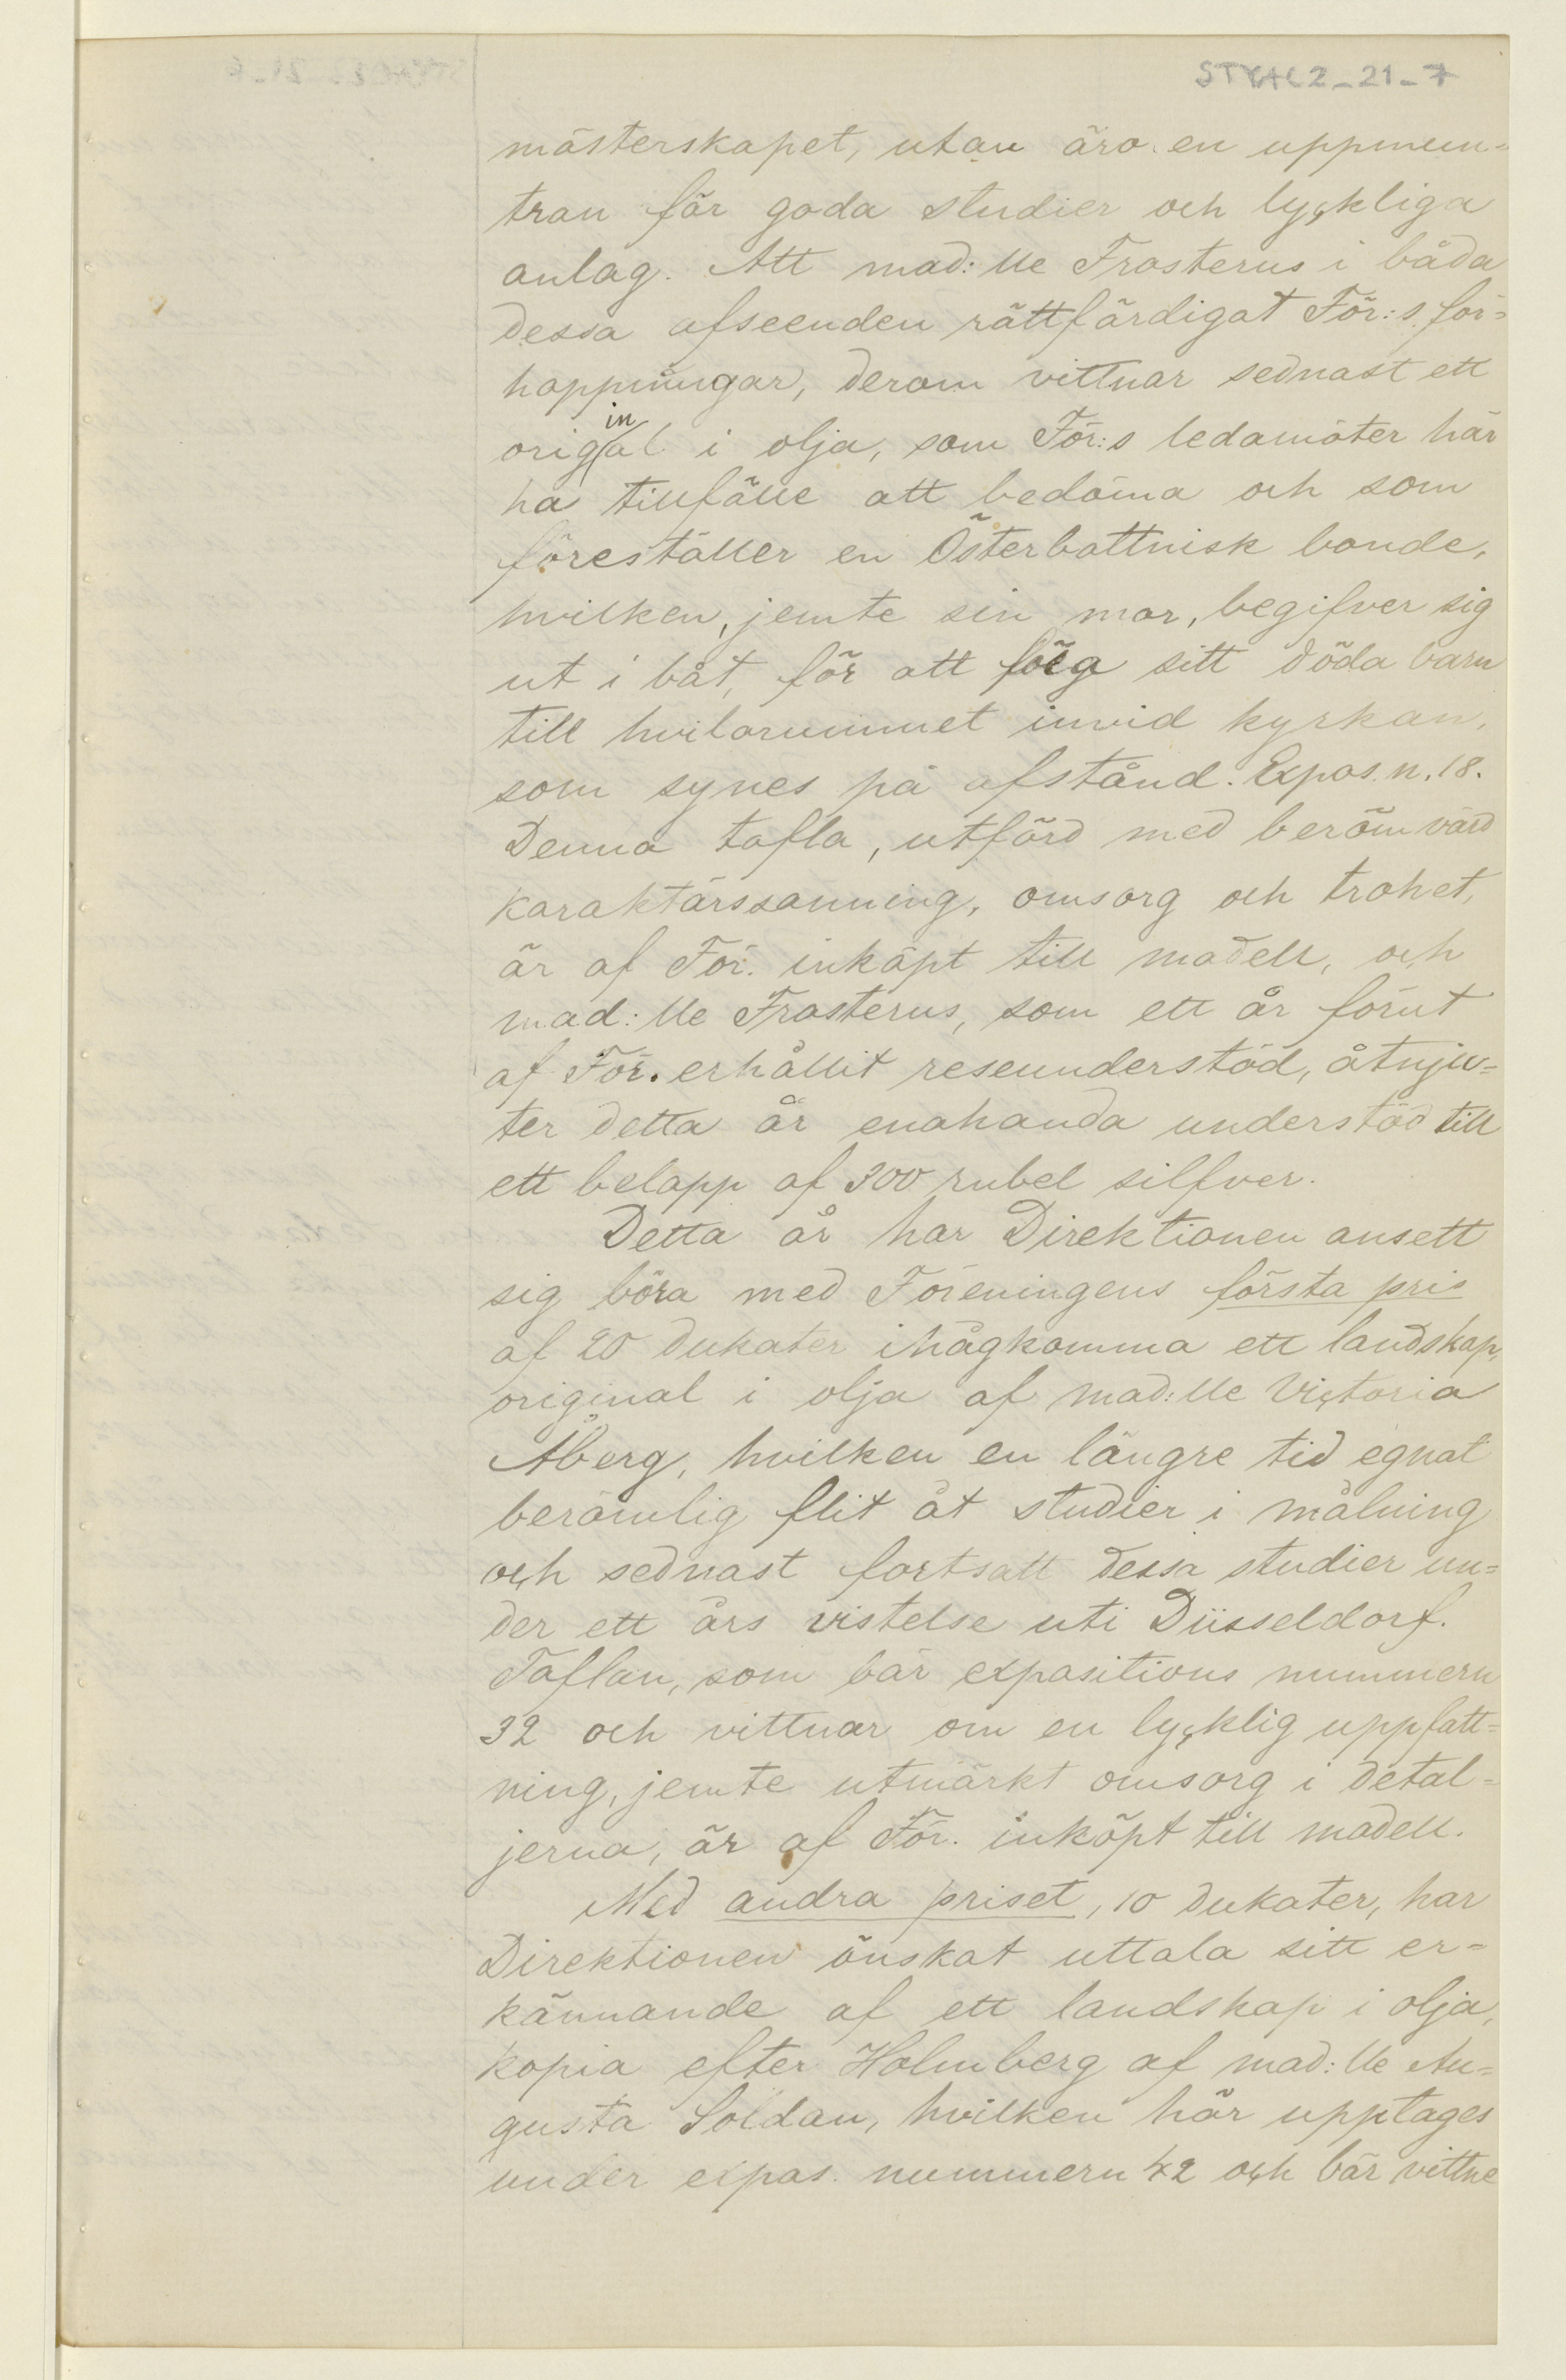 STYAC2_21_7
mästerskapet, utan äro en uppmun=
tran för goda studier och lyckliga
anlag. Att mad:lle Frosterus i båda
dessa afseenden rättfärdigat För:s för=
hoppningar, derom vittnar sednast ett
original i olja, som För:s ledamöter här
ha tillfälle att bedöma och som
föreställer en Österbottnisk bonde,
hvilken, jemte sin mor, begifver sig
ut i båt, för att föra sitt döda barn
till hvilorummet invid kyrkan,
som synes på afstånd. Expos. n. 18.
Denna tafla, utförd med berömvärd
karaktärssanning, omsorg och trohet,
är af För. inköpt till modell, och
mad:lle Frosterus, som ett år förut
af För. erhållit reseunderstöd, åtnju=
ter detta år enahanda understöd till
ett belopp af 300 rubel silfver.
Detta år har Direktionen ansett
sig böra med Föreningens första pris
af 20 dukater ihågkomma ett landskap,
original i olja af mad:lle Victoria
Åberg, hvilken en längre tid egnat
berömlig flit åt studier i målning
och sednast fortsatt dessa studier un=
der ett års vistelse uti Düsseldorf.
Taflan, som bär expositions nummern
32 och vittnar om en lycklig uppfatt=
ning, jemte utmärkt omsorg i detal=
jerna, är af För. inköpt till modell.
Med andra priset, 10 dukater, har
Direktionen önskat uttala sitt er=
kännande af ett landskap i olja,
kopia efter Holmberg af mad:lle Au=
gusta Soldan, hvilken här upptages
under expos. nummern 42 och bär vittne